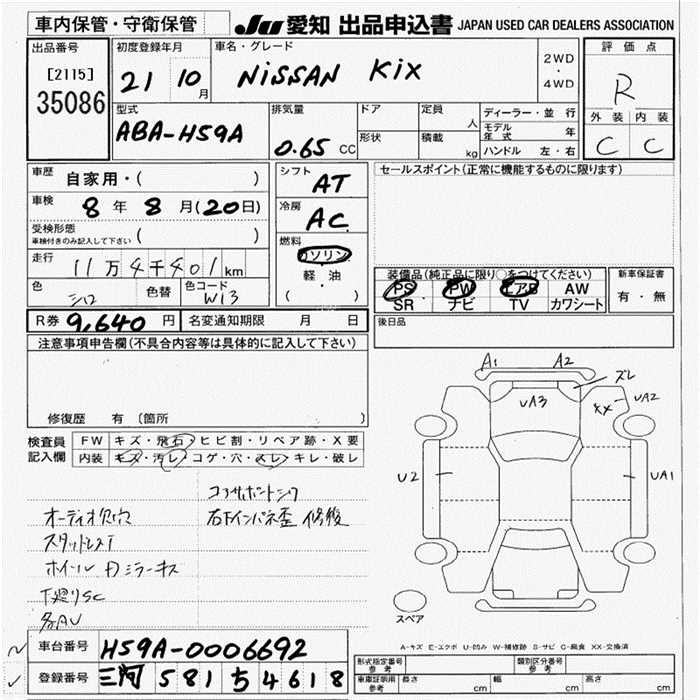 車内保管・守衛保管
JU 愛知 出品申込書 JAPAN USED CAR DEALERS ASSOCIATION
出品番号
[2115]
35086
初度登録年月
21 10月
車名・グレード
NiSSAN KiX
2WD
・
4WD
評価点
R
外装 内装
C C
型式
ABA-H59A
排気量
0.65 CC
ドア
定員
人
形状
積載
kg
ディーラー・並行
モデル年式 年
ハンドル 左・右
車歴
自家用・( )
車検
8年 8月(20日)
受検形態
車検付きのみ記入して下さい ( )
走行
11万4千401km
色
シロ
色替
色コード
W13
シフト
AT
冷房
AC
燃料
ガソリン
軽・油
( )
セールスポイント(正常に機能するものに限ります)
装備品(純正品に限り○をつけてください)
PS PW エアB AW
SR ナビ TV カワシート
新車保証書
有・無
R券 9,640円
名変通知期限 月 日
後日品
注意事項申告欄(不具合内容等は具体的に記入して下さい)
修復歴 有 〔箇所 〕
検査員
記入欄
FW キズ・飛石・ヒビ割・リペア跡・X要
内装 キズ・汚レ・コゲ・穴・スレ・キレ・破レ
コアサポート
オーディオ欠穴
右下インパネ歪 修後
スタッドレス
ホイール Dミラーキズ
下廻りSC
各AU
A1 A2
ズレ
UA3
XX
UA2
U2
UA1
スペア
A-キズ E-エクボ U-凹み W-補修跡 S-サビ C-腐食 XX-交換済
車台番号 H59A-0006692
登録番号 三河 581 ち 4618
形式指定番号
参考
類別区分番号
参考
車庫証明用
参考
長さ cm 幅 cm 高さ cm